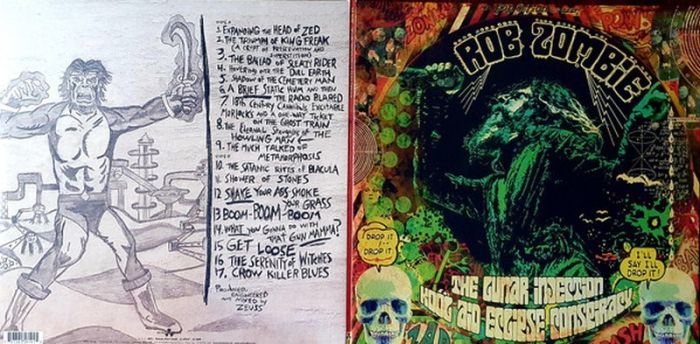 SIDE A
1. EXPANDING THE HEAD OF ZED
2. THE TRIUMPH OF KING FREAK
(A CRYPT OF PRESERVATION AND
SUPERSTITION)
3. THE BALLAD OF SLEAZY RIDER
4. HOVERING OVER THE DULL EARTH
5. SHADOW OF THE CEMETERY MAN
6. A BRIEF STATIC HUM AND THEN
THE RADIO BLARED
7. 18th CENTURY CANNIBALS, EXCITABLE
MORLOCKS AND A ONE-WAY TICKET
ON THE GHOST TRAIN
8. THE ETERNAL STRUGGLES OF THE
HOWLING MAN
9. THE MUCH TALKED OF
METAMORPHOSIS
10. THE SATANIC RITES OF BLACULA
11. SHOWER OF STONES
12. SHAKE YOUR ASS-SMOKE
YOUR GRASS
13. BOOM-BOOM-BOOM
14. WHAT YOU GONNA DO WITH
THAT GUN MAMMA?
15. GET LOOSE
16. THE SERENITY OF WITCHES
17. CROW KILLER BLUES
PRODUCED
ENGINEERED
AND MIXED BY
ZEUSS
ROB ZOMBIE
DROP IT
DROP IT
I'LL
SAY I'LL
DROP IT!
THE LUNAR INJECTION
KOOL AID ECLIPSE CONSPIRACY